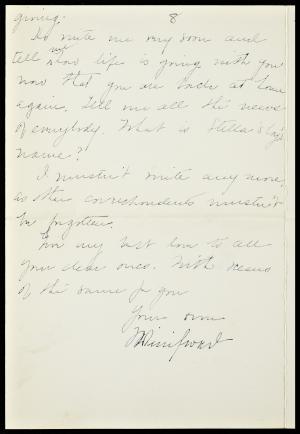 giving. 8
Do write me very soon and
tell me how life is going with you
now that you are back at home
again. Tell me all the news
of everybody. What is Stella's boy's
name?
I mustn't write any more,
as other correspondents mustn't
be forgotten.
Give my best love to all
your dear ones. With oceans
of the same for you
Your own
Winifred